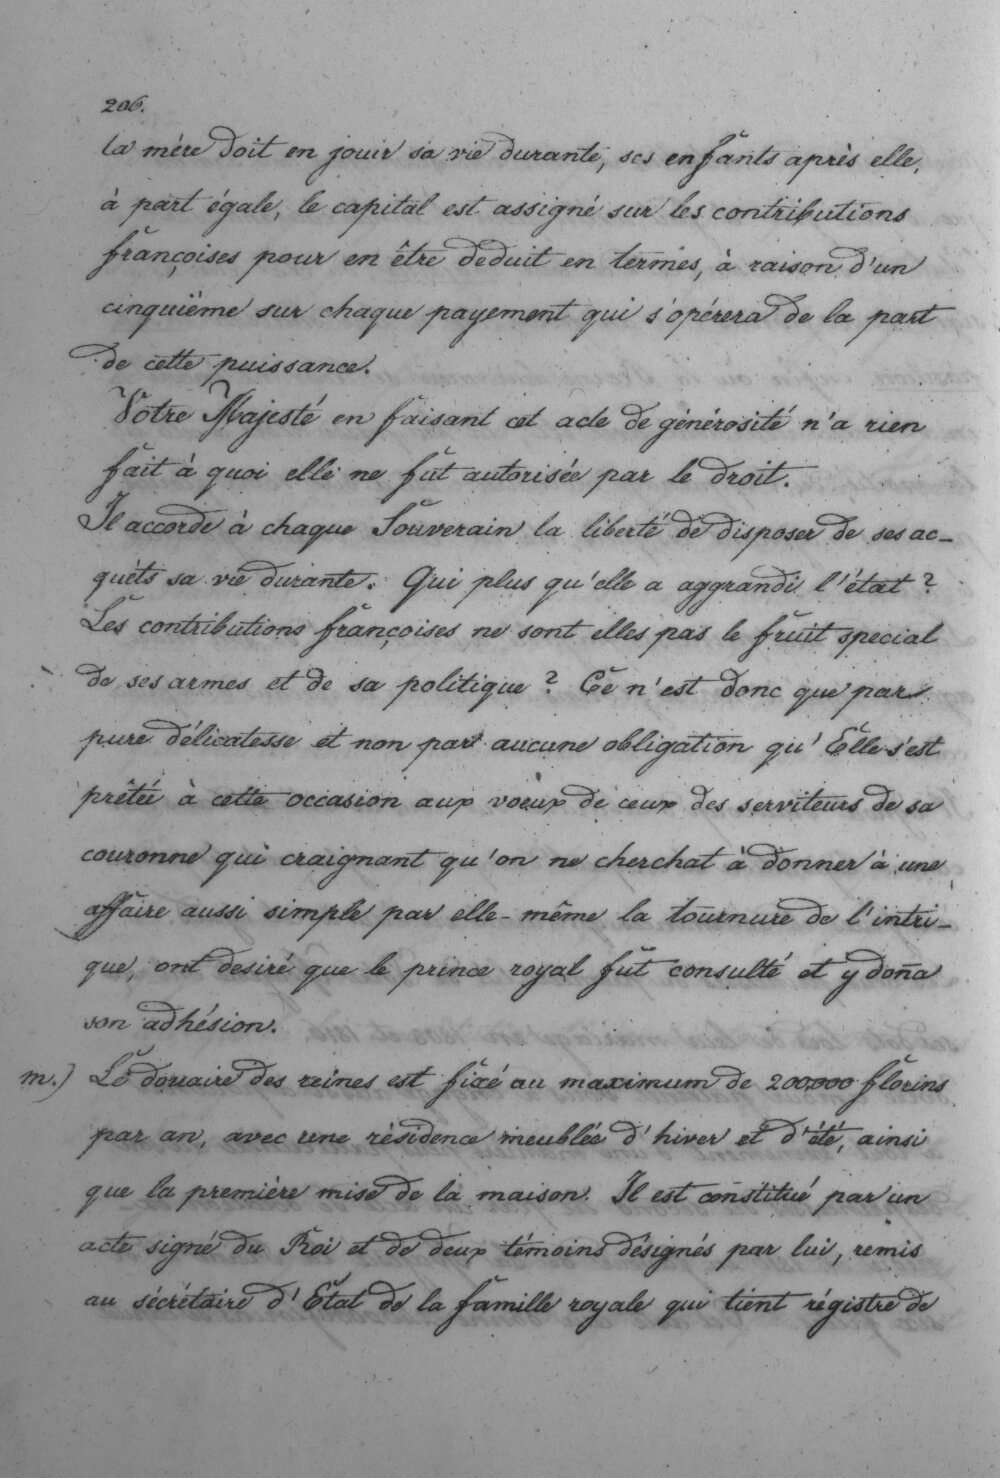 206.
la mére doit en jouir sa vie durante, ses enfants après elle,
à part égale, le capital est assigné sur les contributions
françoises pour en être deduit en termes, à raison d'un
cinquiéme sur chaque payement qui s'opérera de la part
de cette puissance.
Votre Majesté en faisant cet acte de générosité n'a rien
fait à quoi elle ne fut autorisée par le droit.
Il accorde à chaque Souverain la liberté de disposer de ses ac-
quêts sa vie durante. Qui plus qu'elle a aggrandi l'état?
Les contributions françoises ne sont elles pas le fruit special
de ses armes et de sa politique? Ce n'est donc que par
pure délicatesse et non par aucune obligation qu'Elle s'est
prêtée à cette occasion aux voeux de ceux des serviteurs de sa
couronne qui craignant qu'on ne cherchat à donner à une
affaire aussi simple par elle-même la tournure de l'intri-
que, ont desiré que le prince royal fut consulté et y doña
son adhésion.
m.) Le douaire des reines est fixé au maximum de 200,000 florins
par an, avec une résidence meublée d'hiver et d'été, ainsi
que la premiére mise de la maison. Il est constitué par un
acte signé du Roi et de deux témoins désignés par lui, remis
au sécrétaire d'Etat de la famille royale qui tient régistre de